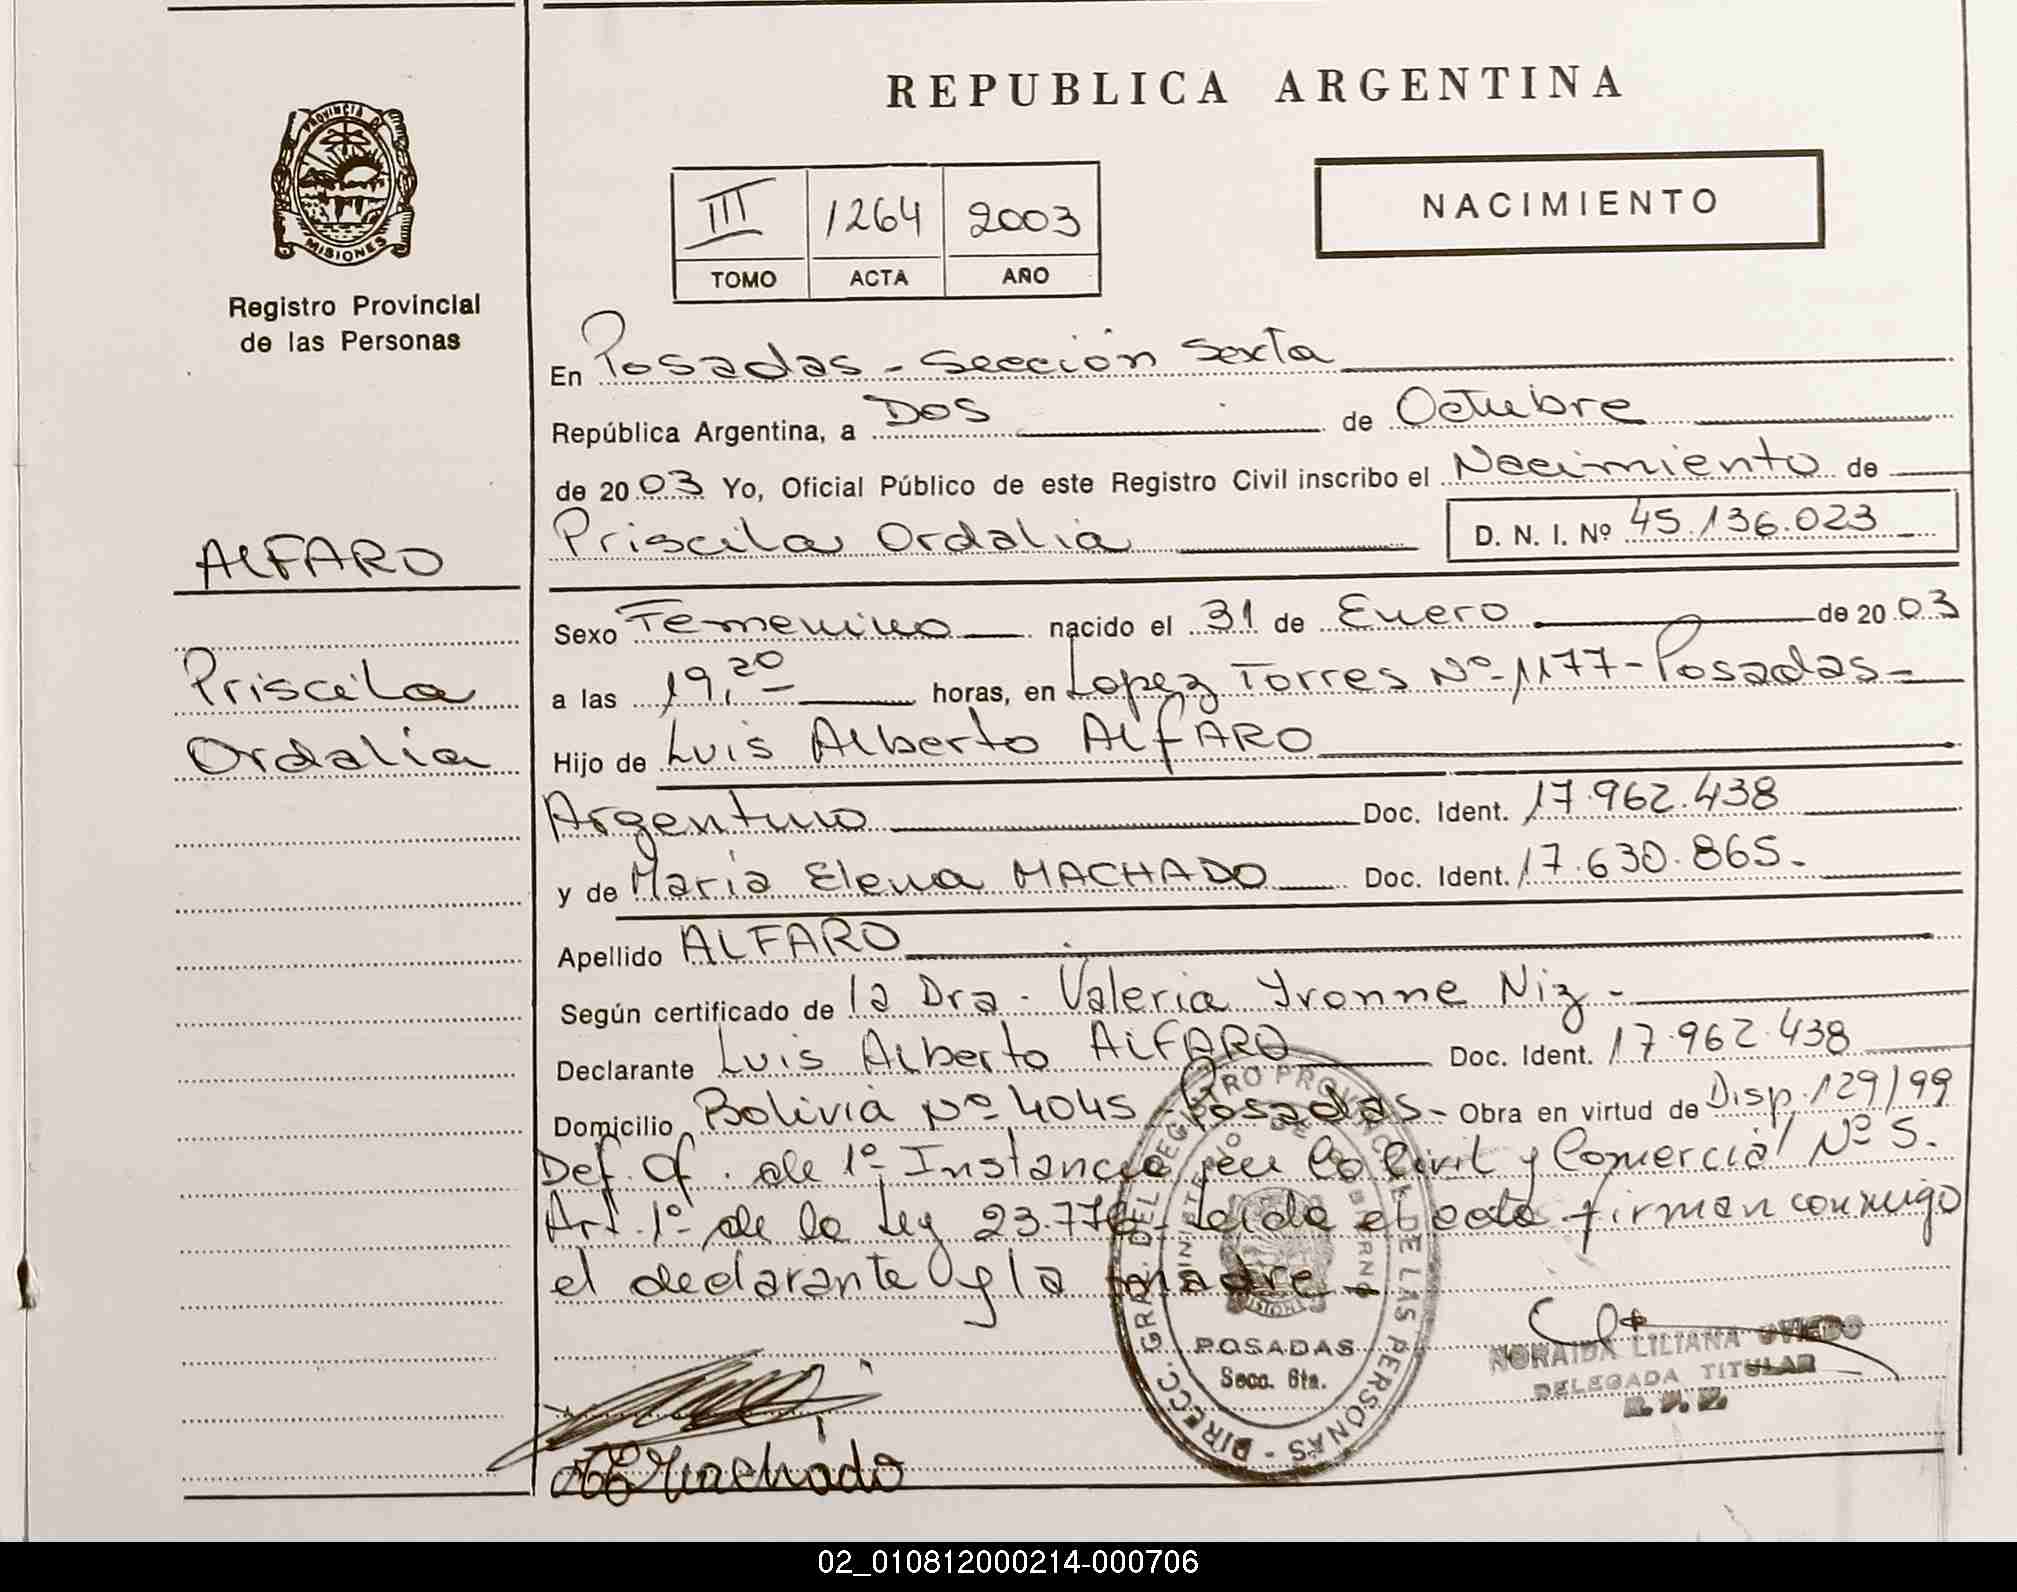 REPUBLICA ARGENTINA
PROVINCIA DE
MISIONES
Registro Provincial
de las Personas
III 1264 2003
TOMO ACTA AÑO
NACIMIENTO
En Posadas - Sección Sexta
República Argentina, a Dos de Octubre
de 2003 Yo, Oficial Público de este Registro Civil inscribo el Nacimiento de
Priscila Ordalia D. N. I. Nº 45.136.023
ALFARO
Priscila
Ordalia
Sexo Femenino nacido el 31 de Enero de 2003
a las 19,20 horas, en Lopez Torres Nº 1177 - Posadas -
Hijo de Luis Alberto ALFARO
Argentino Doc. Ident. 17.962.438
y de Maria Elena MACHADO Doc. Ident. 17.630.865.-
Apellido ALFARO
Según certificado de la Dra. Valeria Yvonne Niz -
Declarante Luis Alberto ALFARO Doc. Ident. 17.962.438
Domicilio Bolivia Nº 4045 - Posadas - Obra en virtud de Disp. 129/99
Def. Of. de 1º Instancia en lo Civil y Comercial Nº 5.
Art. 1º de la Ley 23.776 - Leida el acta firman conmigo
el declarante y la madre -
DIRECC. GRAL. DEL REGISTRO PROVINCIAL DE LAS PERSONAS -
MINISTERIO DE GOBIERNO
MISIONES
POSADAS
Secc. 6ta.
NORAIDA LILIANA OVIEDO
DELEGADA TITULAR
R. P. P.
MEMachado
02_010812000214-000706